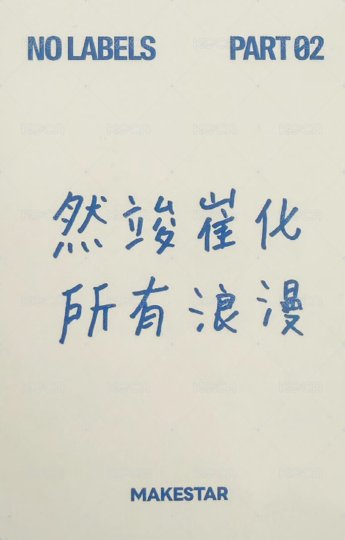 NO LABELS PART 02
然竣崔化
所有浪漫
MAKESTAR